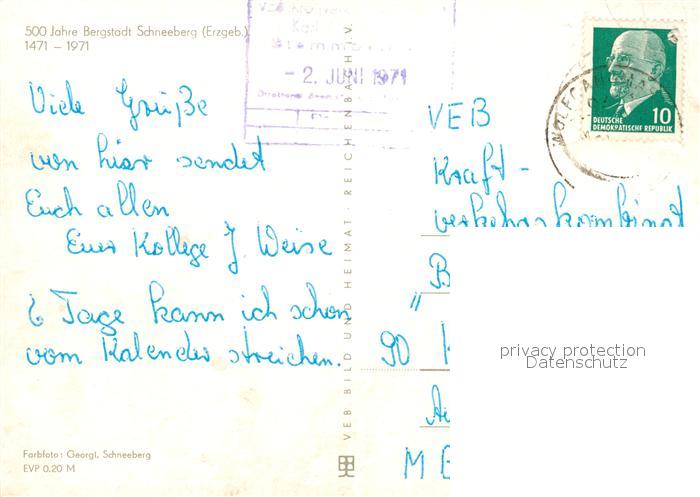 500 Jahre Bergstadt Schneeberg (Erzgeb.)
1471 – 1971
Viele Grüße
von hier sendet
Euch allen
Euer Kollege J. Weise
6 Tage kann ich schon
vom Kalender streichen.
Farbfoto: Georgi, Schneeberg
EVP 0.20 M
VEB BILD UND HEIMAT REICHENBACH I. V.
Karl
- 2. JUNI 1971
10
DEUTSCHE
DEMOKRATISCHE REPUBLIK
VEB
Kraft-
verkehrskombinat
"B
90 K
M E
privacy protection
Datenschutz